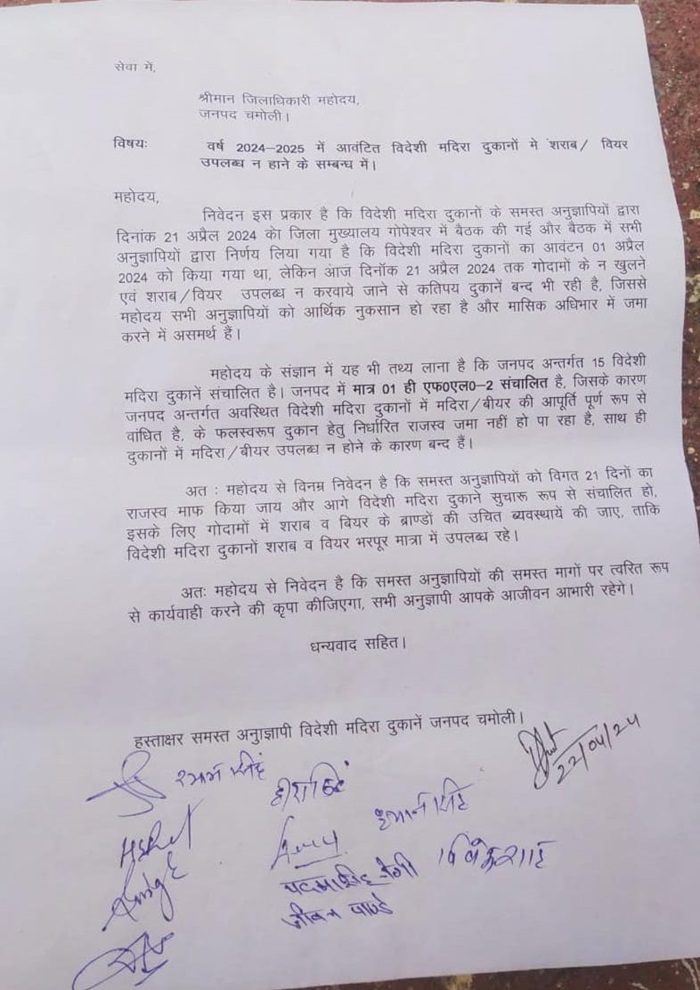 सेवा में,
श्रीमान जिलाधिकारी महोदय,
जनपद चमोली।
विषयः वर्ष 2024–2025 में आवंटित विदेशी मदिरा दुकानों मे शराब/ वियर
उपलब्ध न हाने के सम्बन्ध में।
महोदय,
निवेदन इस प्रकार है कि विदेशी मदिरा दुकानों के समस्त अनुज्ञापियों द्वारा
दिनांक 21 अप्रैल 2024 केा जिला मुख्यालय गोपेश्वर में बैठक की गई और बैठक में सभी
अनुज्ञापियों द्वारा निर्णय लिया गया है कि विदेशी मदिरा दुकानों का आवंटन 01 अप्रैल
2024 को किया गया था, लेकिन आज दिनॉक 21 अप्रैल 2024 तक गोदामों के न खुलने
एवं शराब/वियर उपलब्ध न करवाये जाने से कतिपय दुकानें बन्द भी रही है, जिससे
महोदय सभी अनुज्ञापियों को आर्थिक नुकसान हो रहा है और मासिक अधिभार में जमा
करने में असमर्थ हैं।
महोदय के संज्ञान में यह भी तथ्य लाना है कि जनपद अन्तर्गत 15 विदेशी
मदिरा दुकानें संचालित है। जनपद में मात्र 01 ही एफ0एल0–2 संचालित है, जिसके कारण
जनपद अन्तर्गत अवस्थित विदेशी मदिरा दुकानों में मदिरा/बीयर की आपूर्ति पूर्ण रूप से
वांधित है, के फलस्वरूप दुकान हेतु निर्धारित राजस्व जमा नहीं हो पा रहा है, साथ ही
दुकानों में मदिरा/बीयर उपलब्ध न होने के कारण बन्द है।
अत : महोदय से विनम्र निवेदन है कि समस्त अनुज्ञापियों को विगत 21 दिनों का
राजस्व माफ किया जाय और आगे विदेशी मदिरा दुकाने सुचारू रूप से संचालित हो,
इसके लिए गोदामों में शराब व बियर के ब्राण्डों की उचित ब्यवस्थायें की जाए, ताकि
विदेशी मदिरा दुकानों शराब व वियर भरपूर मात्रा में उपलब्ध रहे।
अतः महोदय से निवेदन है कि समस्त अनुज्ञापियों की समस्त मागों पर त्वरित रूप
से कार्यवाही करने की कृपा कीजिएगा, सभी अनुज्ञापी आपके आजीवन आभारी रहेगे।
धन्यवाद सहित।
हस्ताक्षर समस्त अनुाज्ञापी विदेशी मदिरा दुकानें जनपद चमोली।
22/04/24